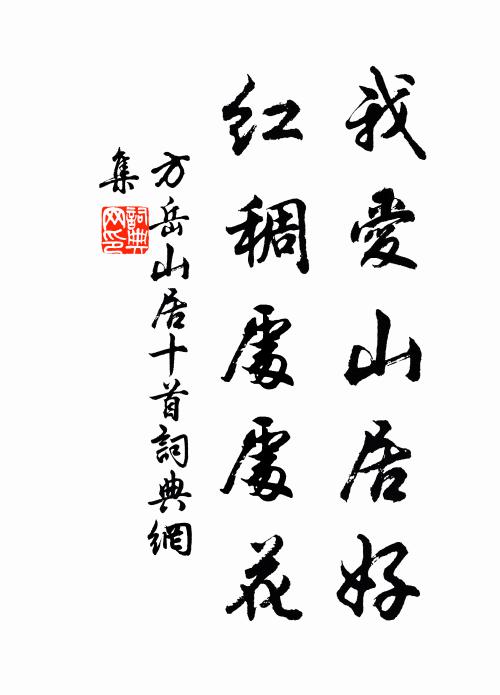 我愛山居好
紅稠處處花
方岳山居十首詞典網
集
詞典網印